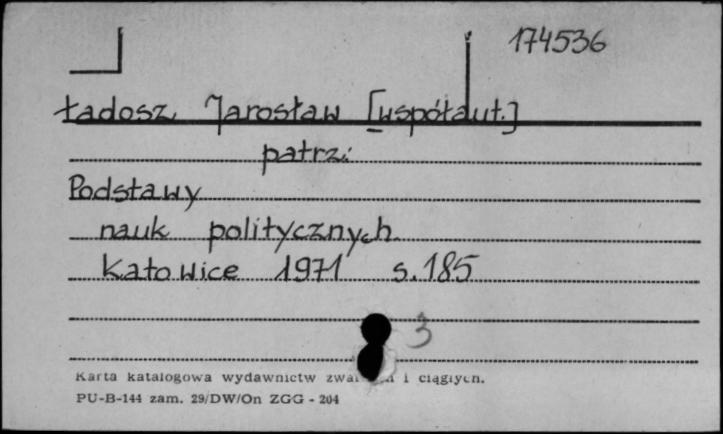 174536
Ładosz, Jarosław [współaut.]
patrz:
Podstawy
nauk politycznych.
Katowice 1971 s. 185
3
Karta katalogowa wydawnictw i ciągłych.
PU-B-144 zam. 29/DW/On ZGG - 204